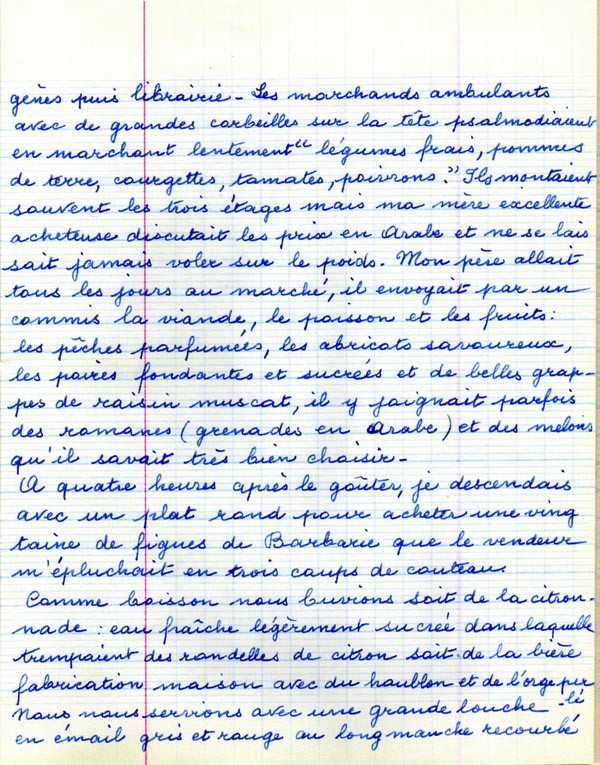 gènes puis librairie - Les marchands ambulants
avec de grandes corbeilles sur la tête psalmodiaient
en marchant lentement "légumes frais, pommes
de terre, courgettes, tomates, poivrons." Ils montaient
souvent les trois étages mais ma mère excellente
acheteuse discutait les prix en Arabe et ne se lais
sait jamais voler sur le poids. Mon père allait
tous les jours au marché, il envoyait par un
commis la viande, le poisson et les fruits:
les pêches parfumées, les abricots savoureux,
les poires fondantes et sucrées et de belles grap-
pes de raisin muscat, il y joignait parfois
des romanes (grenades en Arabe) et des melons
qu'il savait très bien choisir -
A quatre heures après le goûter, je descendais
avec un plat rond pour acheter une ving
taine de figues de Barbarie que le vendeur
m'épluchait en trois coups de couteau.
Comme boisson nous buvions soit de la citron-
nade : eau fraîche légèrement sucrée dans laquelle
trempaient des rondelles de citron soit de la bière
fabrication maison avec du houblon et de l'orge per
lé
Nous nous servions avec une grande louche
en émail gris et rouge au long manche recourbé